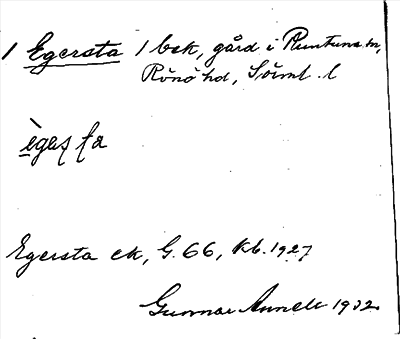 1 Egersta 1 bsk, gård i Runtuna sn,
Rönö hd, Söiml. l
ègeʂta
Egersta ek, G. 66, Kb. 1927
Gunnar Annell 1932